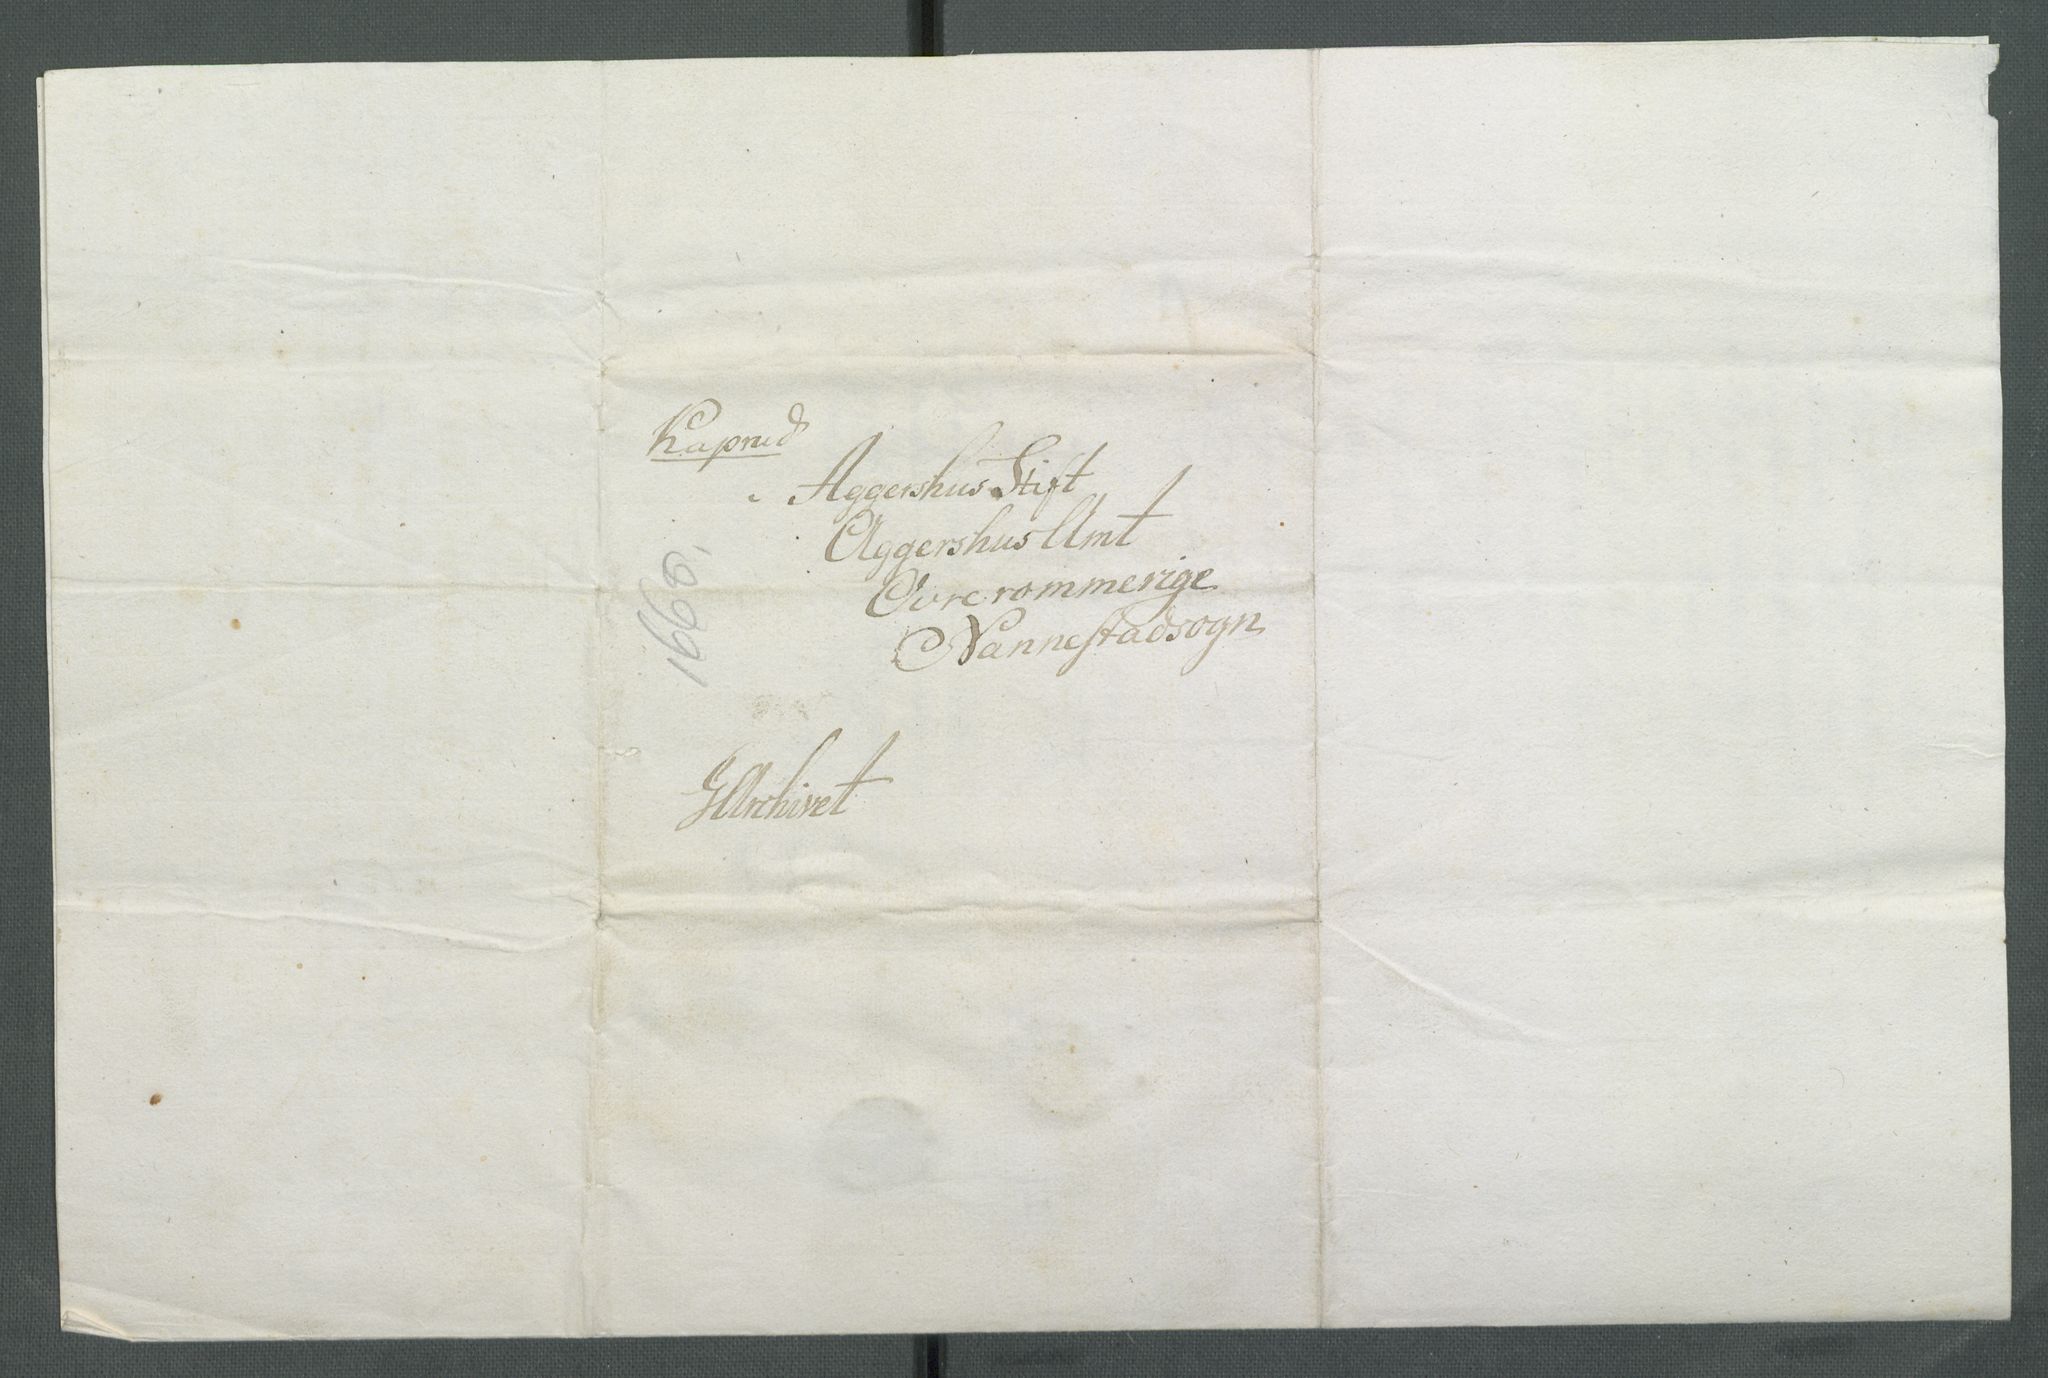 Kaprud
i Aggershus Stift
Aggershus Amt
Ovre rommerige
Nannestadsogn
1668.
I Archivet